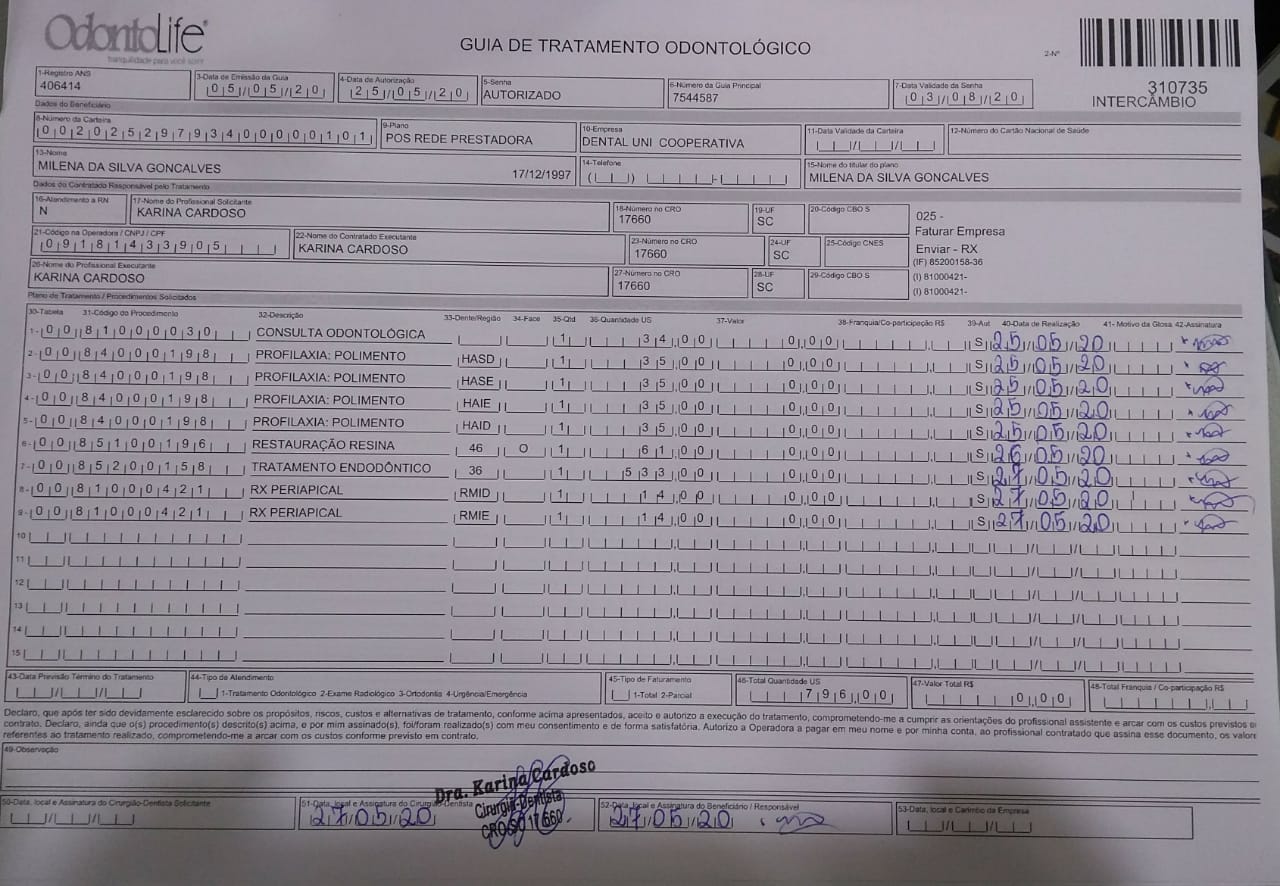 OdontoLife
tranquilidade para você sorrir
GUIA DE TRATAMENTO ODONTOLÓGICO
2-Nº
310735
INTERCÂMBIO
1-Registro ANS
406414
3-Data de Emissão da Guia
05/05/20
4-Data de Autorização
25/05/20
5-Senha
AUTORIZADO
6-Número da Guia Principal
7544587
7-Data Validade da Senha
03/08/20
Dados do Beneficiário
8-Número da Carteira
00202529793400000101
9-Plano
POS REDE PRESTADORA
10-Empresa
DENTAL UNI COOPERATIVA
11-Data Validade da Carteira
12-Número do Cartão Nacional de Saúde
13-Nome
MILENA DA SILVA GONCALVES 17/12/1997
14-Telefone
15-Nome do titular do plano
MILENA DA SILVA GONCALVES
Dados do Contratado Responsável pelo Tratamento
16-Atendimento a RN
N
17-Nome do Profissional Solicitante
KARINA CARDOSO
18-Número no CRO
17660
19-UF
SC
20-Código CBO S
025 -
Faturar Empresa
Enviar - RX
(IF) 85200158-36
(I) 81000421-
(I) 81000421-
21-Código na Operadora / CNPJ / CPF
09181433905
22-Nome do Contratado Executante
KARINA CARDOSO
23-Número no CRO
17660
24-UF
SC
25-Código CNES
26-Nome do Profissional Executante
KARINA CARDOSO
27-Número no CRO
17660
28-UF
SC
29-Código CBO S
Plano de Tratamento / Procedimentos Solicitados
30-Tabela 31-Código do Procedimento 32-Descrição 33-Dente/Região 34-Face 35-Qtd 36-Quantidade US 37-Valor 38-Franquia/Co-participação R$ 39-Aut 40-Data de Realização 41- Motivo da Glosa 42-Assinatura
1- 00 81000030 CONSULTA ODONTOLÓGICA 1 34,00 0,00 S 25/05/20
2- 00 84000198 PROFILAXIA: POLIMENTO HASD 1 35,00 0,00 S 25/05/20
3- 00 84000198 PROFILAXIA: POLIMENTO HASE 1 35,00 0,00 S 25/05/20
4- 00 84000198 PROFILAXIA: POLIMENTO HAIE 1 35,00 0,00 S 25/05/20
5- 00 84000198 PROFILAXIA: POLIMENTO HAID 1 35,00 0,00 S 25/05/20
6- 00 85100196 RESTAURAÇÃO RESINA 46 O 1 61,00 0,00 S 26/05/20
7- 00 85200158 TRATAMENTO ENDODÔNTICO 36 1 533,00 0,00 S 27/05/20
8- 00 81000421 RX PERIAPICAL RMID 1 14,00 0,00 S 27/05/20
9- 00 81000421 RX PERIAPICAL RMIE 1 14,00 0,00 S 27/05/20
10
11
12
13
14
15
43-Data Previsão Término do Tratamento
44-Tipo de Atendimento
1-Tratamento Odontológico 2-Exame Radiológico 3-Ortodontia 4-Urgência/Emergência
45-Tipo de Faturamento
1-Total 2-Parcial
46-Total Quantidade US
796,00
47-Valor Total R$
0,00
48-Total Franquia / Co-participação R$
Declaro, que após ter sido devidamente esclarecido sobre os propósitos, riscos, custos e alternativas de tratamento, conforme acima apresentados, aceito e autorizo a execução do tratamento, comprometendo-me a cumprir as orientações do profissional assistente e arcar com os custos previstos
contrato. Declaro, ainda que o(s) procedimento(s) descrito(s) acima, e por mim assinado(s), foi/foram realizado(s) com meu consentimento e de forma satisfatória. Autorizo a Operadora a pagar em meu nome e por minha conta, ao profissional contratado que assina esse documento, os valore
referentes ao tratamento realizado, comprometendo-me a arcar com os custos conforme previsto em contrato.
49-Observação
50-Data, local e Assinatura do Cirurgião-Dentista Solicitante
51-Data, local e Assinatura do Cirurgião-Dentista
27/05/20
Dra. Karina Cardoso
Cirurgiã-Dentista
CRO/SC 17660
52-Data, local e Assinatura do Beneficiário / Responsável
27/05/20
53-Data, local e Carimbo da Empresa